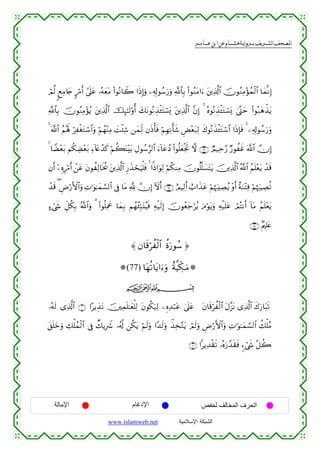 المصحف الشريف برواية هشام عن ابن عامر
إِنَّمَا ٱلْمُؤْمِنُونَ ٱلَّذِينَ ءَامَنُوا۟ بِٱللَّهِ وَرَسُولِهِۦ وَإِذَا كَانُوا۟ مَعَهُۥ عَلَىٰٓ أَمْرٍ جَامِعٍ لَّمْ
يَذْهَبُوا۟ حَتَّىٰ يَسْتَـْٔذِنُوهُ ۚ إِنَّ ٱلَّذِينَ يَسْتَـْٔذِنُونَكَ أُو۟لَـٰٓئِكَ ٱلَّذِينَ يُؤْمِنُونَ بِٱللَّهِ
وَرَسُولِهِۦ ۚ فَإِذَا ٱسْتَـْٔذَنُوكَ لِبَعْضِ شَأْنِهِمْ فَأْذَن لِّمَن شِئْتَ مِنْهُمْ وَٱسْتَغْفِرْ لَهُمُ ٱللَّهَ ۚ
إِنَّ ٱللَّهَ غَفُورٌ رَّحِيمٌ ۝ لَّا تَجْعَلُوا۟ دُعَآءَ ٱلرَّسُولِ بَيْنَكُمْ كَدُعَآءِ بَعْضِكُم بَعْضًا ۚ
قَدْ يَعْلَمُ ٱللَّهُ ٱلَّذِينَ يَتَسَلَّلُونَ مِنكُمْ لِوَاذًا ۚ فَلْيَحْذَرِ ٱلَّذِينَ يُخَالِفُونَ عَنْ أَمْرِهِۦٓ أَن
تُصِيبَهُمْ فِتْنَةٌ أَوْ يُصِيبَهُمْ عَذَابٌ أَلِيمٌ ۝ أَلَآ إِنَّ لِلَّهِ مَا فِى ٱلسَّمَـٰوَٰتِ وَٱلْأَرْضِ ۖ قَدْ
يَعْلَمُ مَآ أَنتُمْ عَلَيْهِ وَيَوْمَ يُرْجَعُونَ إِلَيْهِ فَيُنَبِّئُهُم بِمَا عَمِلُوا۟ ۗ وَٱللَّهُ بِكُلِّ شَىْءٍ
عَلِيمٌۢ ۝
﴿ سُورَةُ ٱلْفُرْقَانِ ﴾
مَكِّيَّةٌ وَءَايَاتُهَا (77)
بِسْمِ ٱللَّهِ ٱلرَّحْمَـٰنِ ٱلرَّحِيمِ
تَبَارَكَ ٱلَّذِى نَزَّلَ ٱلْفُرْقَانَ عَلَىٰ عَبْدِهِۦ لِيَكُونَ لِلْعَـٰلَمِينَ نَذِيرًا ۝ ٱلَّذِى لَهُۥ
مُلْكُ ٱلسَّمَـٰوَٰتِ وَٱلْأَرْضِ وَلَمْ يَتَّخِذْ وَلَدًا وَلَمْ يَكُن لَّهُۥ شَرِيكٌ فِى ٱلْمُلْكِ وَخَلَقَ
كُلَّ شَىْءٍ فَقَدَّرَهُۥ تَقْدِيرًا ۝
الحرف المخالف لحفص الإدغام الإمالة
الشبكة الإسلامية www.islamweb.net